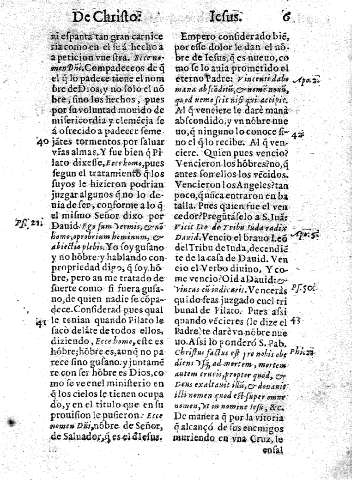 De Christo?
ni espanta tan gran carnice
ria como en el se á hecho a
a peticion vuestra. Ecce no-
men Dñi. Compadeceos de q̃
el q̃ lo padece tiene el nom
bre de Dios, y no solo el nõ
bre, sino los hechos, pues
por su voluntad mouido de
misericordia y clemẽcia se
á ofrecido a padecer seme
40
jãtes tormentos por saluar
vr̃as almas. Y fue bien q̃ Pi
lato dixesse, Ecce homo, pues
segun el tratamiẽto q̃ los
suyos le hizieron podrian
juzgar algunos q̃ no lo de-
uia de ser, conforme a lo q̃
el mismo Señor dixo por
Psf. 21.
Dauid. Ego sum vermis, & nõ
homo, oprobrium hominum, &
abiectio plebis. Yo soy gusano
y no hõbre y hablando con
propriedad digo, q̃ soy hõ-
bre, pero an me tratado de
suerte como si fuera gusa-
no, de quien nadie se copa-
dece. Considerad pues qual
le tenian quando Pilato le
41
sacò delãte de todos ellos,
diziendo, Ecce homo, este es
hõbre; hõbre es, aunq̃ no pa
rece sino gusano. y juntamẽ
te con ser hõbre es Dios, co
mo se ve en el ministerio en
q̃ los cielos le tienen ocupa
do, y en el titulo que en su
prouision le pusieron: Ecce
nomen Dñi, nõbre de Señor,
de Saluador, q̃ es el d Iesus.
Iesus.
6
Empero considerado biẽ,
por esse dolor le dan el nõ-
bre de Iesus, q̃ es nueuo, co
mo se lo auia prometido el
eterno Padre: Vincenti dabo
Apo. 2.
mana abscõditũ, & nomẽ nouũ,
quod nemo scit nisi qui accipit.
Al q̃ vẽciere le darè manà
abscondido, y vn nõbre nue
uo, q̃ ninguno lo conoce si-
42
no el q̃ lo recibe. Al q̃ ven-
ciere. Quien pues vencio?
Vencieron los hõbres? no, q̃
antes son ellos los vẽcidos.
Vencieron los Angeles? tan
poco, q̃ nũca entraron en ba
talla. Pues quien fue el ven-
cedor? Pregũtáselo a S. Iuã:
Vicit Leo de Tribu Iuda radix
Apo. 5.
Dauid. Vencio el brauo Leõ
del Tribu de Iuda, decendiẽ
te de la casa de Dauid. Ven
cio el Verbo diuino, Y co-
mo vencio? Oid a Dauid: &
Psf. 50.
vincas cũ iudicaris. Vencerás
quãdo seas juzgado en el tri
bunal de Pilato. Pues assi
43
quando vẽcieres (le dize el
Padre) te darè vn nõbre nue
uo. Assi lo ponderò S. Pab.
Christus factus est pro nobis obe
Phi. 2.
diens vsq; ad mortem, mortem
autem crucis, propter quod, &
Deus exaltauit illũ, & donauit
illi nomen quod est super omne
nomen, vt in nomine Iesu, &c.
De manera q̃ por la vitoria
q̃ alcançò de sus enemigos
muriendo en vna Cruz, le
ensal